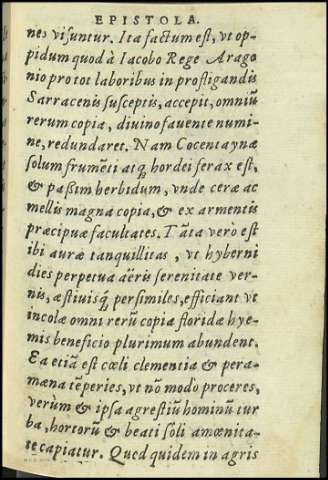 EPISTOLA.
nes visuntur. Ita factum est, vt op-
pidum quod à Iacobo Rege Arago
nio pro tot laboribus in profligandis
Sarracenis susceptis, accepit, omniũ
rerum copia, diuino fauente numi-
ne, redundaret. Nam Cocentaynæ
solum frumẽti atq; hordei ferax est,
& passim herbidum, vnde ceræ ac
mellis magna copia, & ex armentis
præcipuæ facultates. Tãta vero est
ibi auræ tanquillitas, vt hyberni
dies perpetua aëris serenitate ver-
nis, æstiuisq; persimiles, efficiant vt
incolæ omni rerũ copia floridæ hye-
mis beneficio plurimum abundent.
Ea etiã est cœli clementia & pera-
mœna tẽperies, vt nõ modò proceres,
verùm & ipsa agrestiũ hominũ tur
ba, hortorũ & beati soli amœnita-
te capiatur. Quod quidem in agris